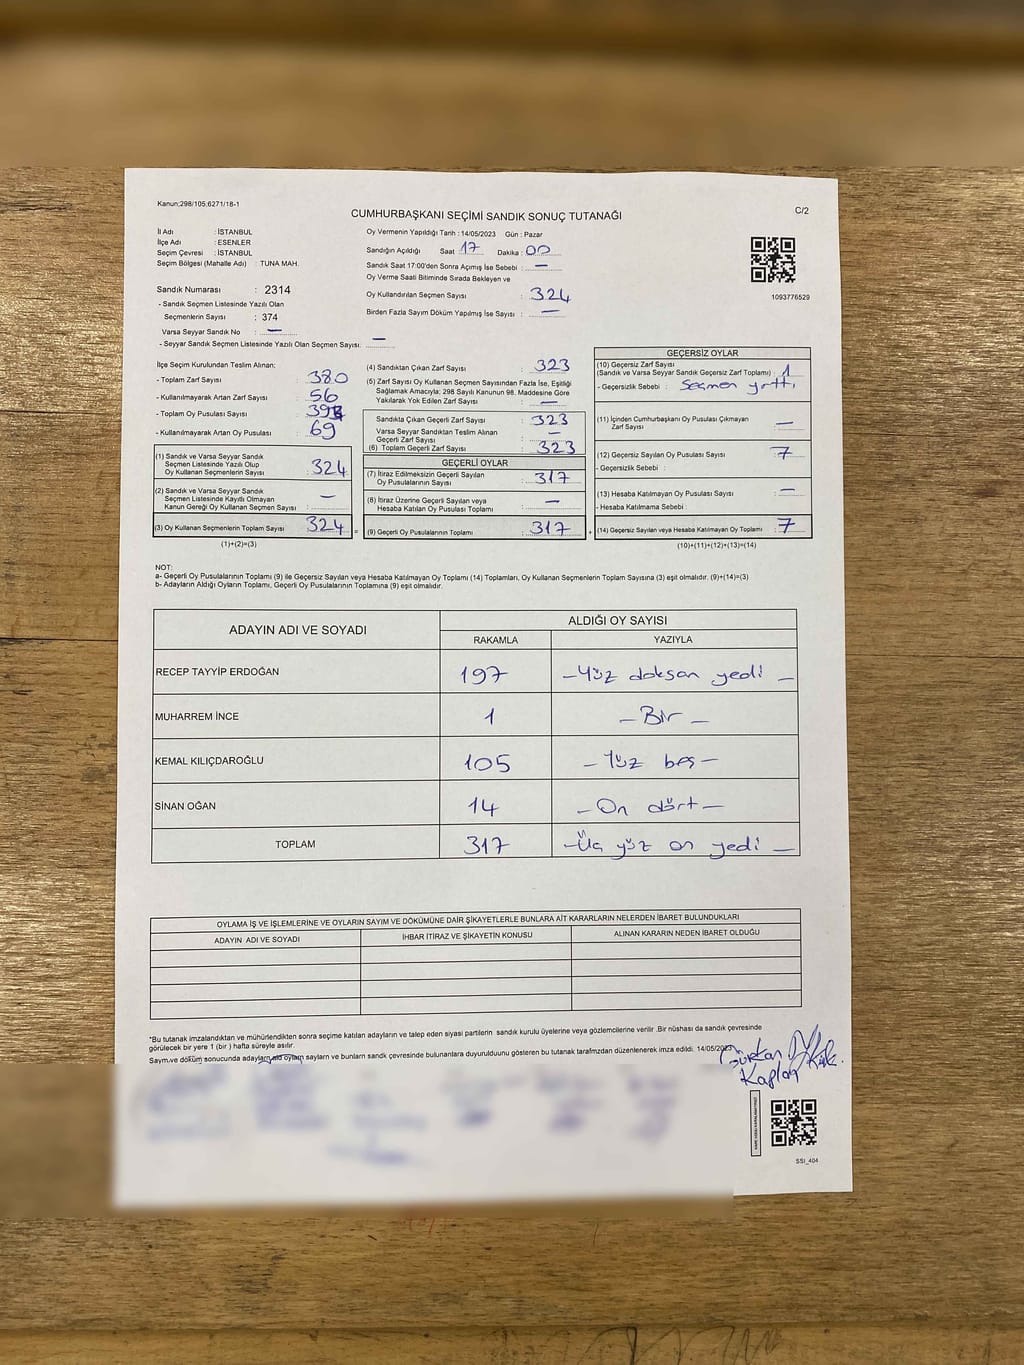 Kanun;298/105;6271/18-1
CUMHURBAŞKANI SEÇİMİ SANDIK SONUÇ TUTANAĞI
C/2
İl Adı : İSTANBUL
İlçe Adı : ESENLER
Seçim Çevresi : İSTANBUL
Seçim Bölgesi (Mahalle Adı) : TUNA MAH.
Sandık Numarası : 2314
- Sandık Seçmen Listesinde Yazılı Olan
Seçmenlerin Sayısı : 374
Varsa Seyyar Sandık No : —
- Seyyar Sandık Seçmen Listesinde Yazılı Olan Seçmen Sayısı: —
Oy Vermenin Yapıldığı Tarih : 14/05/2023 Gün : Pazar
Sandığın Açıldığı Saat 17 Dakika : 00
Sandık Saat 17:00'den Sonra Açımış İse Sebebi : —
Oy Verme Saati Bitiminde Sırada Bekleyen ve
Oy Kullandırılan Seçmen Sayısı : 324
Birden Fazla Sayım Döküm Yapılmış İse Sayısı : —
1093776529
İlçe Seçim Kurulundan Teslim Alınan:
- Toplam Zarf Sayısı : 380
- Kullanılmayarak Artan Zarf Sayısı : 56
- Toplam Oy Pusulası Sayısı :
- Kullanılmayarak Artan Oy Pusulası : 69
(1) Sandık ve Varsa Seyyar Sandık
Seçmen Listesinde Yazılı Olup
Oy Kullanan Seçmenlerin Sayısı : 324
(2) Sandık ve Varsa Seyyar Sandık
Seçmen Listesinde Kayıtlı Olmayan
Kanun Gereği Oy Kullanan Seçmen Sayısı : —
(3) Oy Kullanan Seçmenlerin Toplam Sayısı : 324 =
(1)+(2)=(3)
(4) Sandıktan Çıkan Zarf Sayısı : 323
(5) Zarf Sayısı Oy Kullanan Seçmen Sayısından Fazla İse, Eşitliği
Sağlamak Amacıyla; 298 Sayılı Kanunun 98. Maddesine Göre
Yakılarak Yok Edilen Zarf Sayısı : —
Sandıkta Çıkan Geçerli Zarf Sayısı : 323
Varsa Seyyar Sandıktan Teslim Alınan
Geçerli Zarf Sayısı : —
(6) Toplam Geçerli Zarf Sayısı : 323
GEÇERLİ OYLAR
(7) İtiraz Edilmeksizin Geçerli Sayılan
Oy Pusulalarının Sayısı : 317
(8) İtiraz Üzerine Geçerli Sayılan veya
Hesaba Katılan Oy Pusulası Toplamı : —
(9) Geçerli Oy Pusulalarının Toplamı : 317 +
GEÇERSİZ OYLAR
(10) Geçersiz Zarf Sayısı
(Sandık ve Varsa Seyyar Sandık Geçersiz Zarf Toplamı) : 1
- Geçersizlik Sebebi : Seçmen yırttı
(11) İçinden Cumhurbaşkanı Oy Pusulası Çıkmayan
Zarf Sayısı : —
(12) Geçersiz Sayılan Oy Pusulası Sayısı : 7
- Geçersizlik Sebebi :
(13) Hesaba Katılmayan Oy Pusulası Sayısı : —
- Hesaba Katılmama Sebebi :
(14) Geçersiz Sayılan veya Hesaba Katılmayan Oy Toplamı : 7
(10)+(11)+(12)+(13)=(14)
NOT:
a- Geçerli Oy Pusulalarının Toplamı (9) ile Geçersiz Sayılan veya Hesaba Katılmayan Oy Toplamı (14) Toplamları, Oy Kullanan Seçmenlerin Toplam Sayısına (3) eşit olmalıdır. (9)+(14)=(3)
b- Adayların Aldığı Oyların Toplamı, Geçerli Oy Pusulalarının Toplamına (9) eşit olmalıdır.
ADAYIN ADI VE SOYADI
ALDIĞI OY SAYISI
RAKAMLA YAZIYLA
RECEP TAYYİP ERDOĞAN 197 - Yüz doksan yedi -
MUHARREM İNCE 1 - Bir -
KEMAL KILIÇDAROĞLU 105 - Yüz beş -
SİNAN OĞAN 14 - On dört -
TOPLAM 317 - Üç yüz on yedi -
OYLAMA İŞ VE İŞLEMLERİNE VE OYLARIN SAYIM VE DÖKÜMÜNE DAİR ŞİKAYETLERLE BUNLARA AİT KARARLARIN NELERDEN İBARET BULUNDUKLARI
ADAYIN ADI VE SOYADI İHBAR İTİRAZ VE ŞİKAYETİN KONUSU ALINAN KARARIN NEDEN İBARET OLDUĞU
*Bu tutanak imzalandıktan ve mühürlendikten sonra seçime katılan adayların ve talep eden siyasi partilerin sandık kurulu üyelerine veya gözlemcilerine verilir .Bir nüshası da sandık çevresinde
görülecek bir yere 1 (bir ) hafta süreyle asılır.
Sayım ve döküm sonucunda adayların oyların sayların ve bunların sandık çevresinde bulunanlara duyurulduunu gösteren bu tutanak tarafmzdan düzenlenerek imza edildi. 14/05/2023
Gürkan
Kaplan
SSI_404